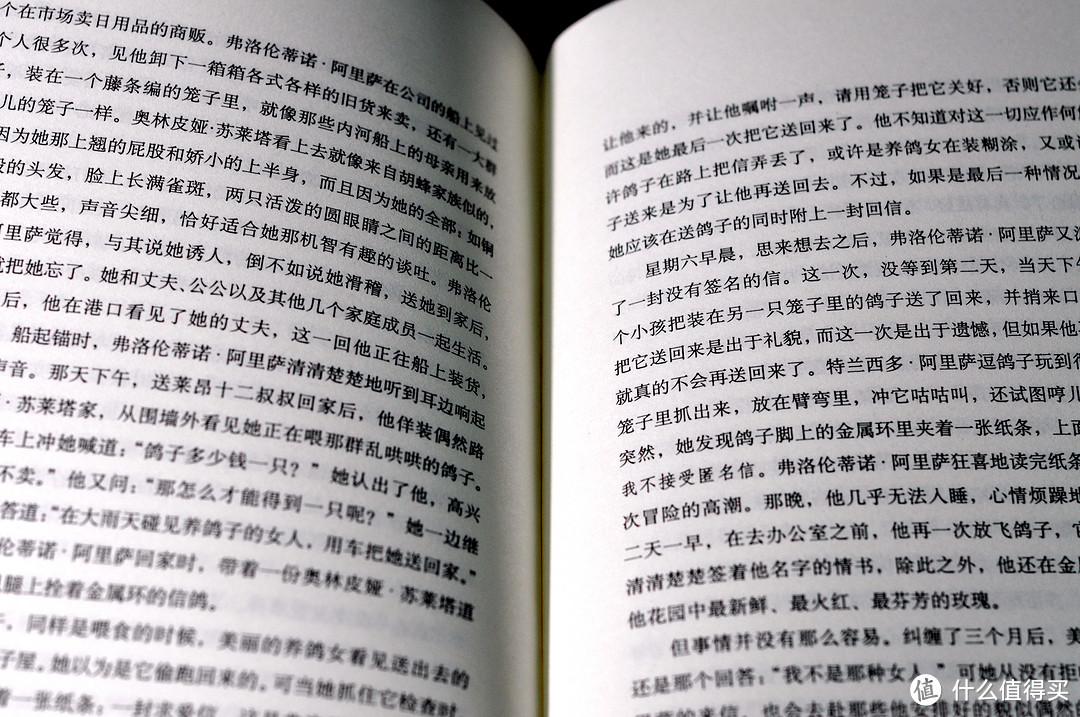 个在市场卖日用品的商贩。弗洛伦蒂诺·阿里萨在公司的船上见过
个人很多次，见他卸下一箱箱各式各样的旧货来卖，还有一大群
子，装在一个藤条编的笼子里，就像那些内河船上的母亲用来放
儿的笼子一样。奥林皮娅·苏莱塔看上去就像来自胡蜂家族似的，
因为她那上翘的屁股和娇小的上半身，而且因为她的全部：如铜
的头发，脸上长满雀斑，两只活泼的圆眼睛之间的距离比一
都大些，声音尖细，恰好适合她那机智有趣的谈吐。弗洛伦
阿里萨觉得，与其说她诱人，倒不如说她滑稽，送她到家后，
就把她忘了。她和丈夫、公公以及其他几个家庭成员一起生活。
后，他在港口看见了她的丈夫，这一回他正往船上装货，
船起锚时，弗洛伦蒂诺·阿里萨清清楚楚地听到耳边响起
声音。那天下午，送莱昂十二叔叔回家后，他佯装偶然路
·苏莱塔家，从围墙外看见她正在喂那群乱哄哄的鸽子。
车上冲她喊道：“鸽子多少钱一只？”她认出了他，高兴
不卖。”他又问：“那怎么才能得到一只呢？”她一边继
答道：“在大雨天碰见养鸽子的女人，用车把她送回家。”
伦蒂诺·阿里萨回家时，带着一份奥林皮娅·苏莱塔道
腿上拴着金属环的信鸽。
同样是喂食的时候，美丽的养鸽女看见送出去的
子屋。她以为是它偷跑回来的。可当她抓住它检查时，
着一张纸条：一封求爱信
让他来的，并让他嘱咐一声，请用笼子把它关好，否则它还会
而这是她最后一次把它送回来了。他不知道对这一切应作何
许鸽子在路上把信弄丢了，或许是养鸽女在装糊涂，又或
子送来是为了让他再送回去。不过，如果是最后一种情况
她应该在送鸽子的同时附上一封回信。
星期六早晨，思来想去之后，弗洛伦蒂诺·阿里萨又
了一封没有签名的信。这一次，没等到第二天，当天下午
个小孩把装在另一只笼子里的鸽子送了回来，并捎来口
把它送回来是出于礼貌，而这一次是出于遗憾，但如果他
就真的不会再送回来了。特兰西多·阿里萨逗鸽子玩到
笼子里抓出来，放在臂弯里，冲它咕咕叫，还试图哼儿
突然，她发现鸽子脚上的金属环里夹着一张纸条，上面
我不接受匿名信。弗洛伦蒂诺·阿里萨狂喜地读完纸条
次冒险的高潮。那晚，他几乎无法入睡，心情烦躁地
二天一早，在去办公室之前，他再一次放飞鸽子，它
清清楚楚签着他名字的情书，除此之外，他还在金属
他花园中最新鲜、最火红、最芬芳的玫瑰。
但事情并没有那么容易。纠缠了三个月后，美
还是那个回答：“我不是那种女人。”可她从没有拒
的来信，也会去赴那些他安排好的貌似偶然的
值 什么值得买